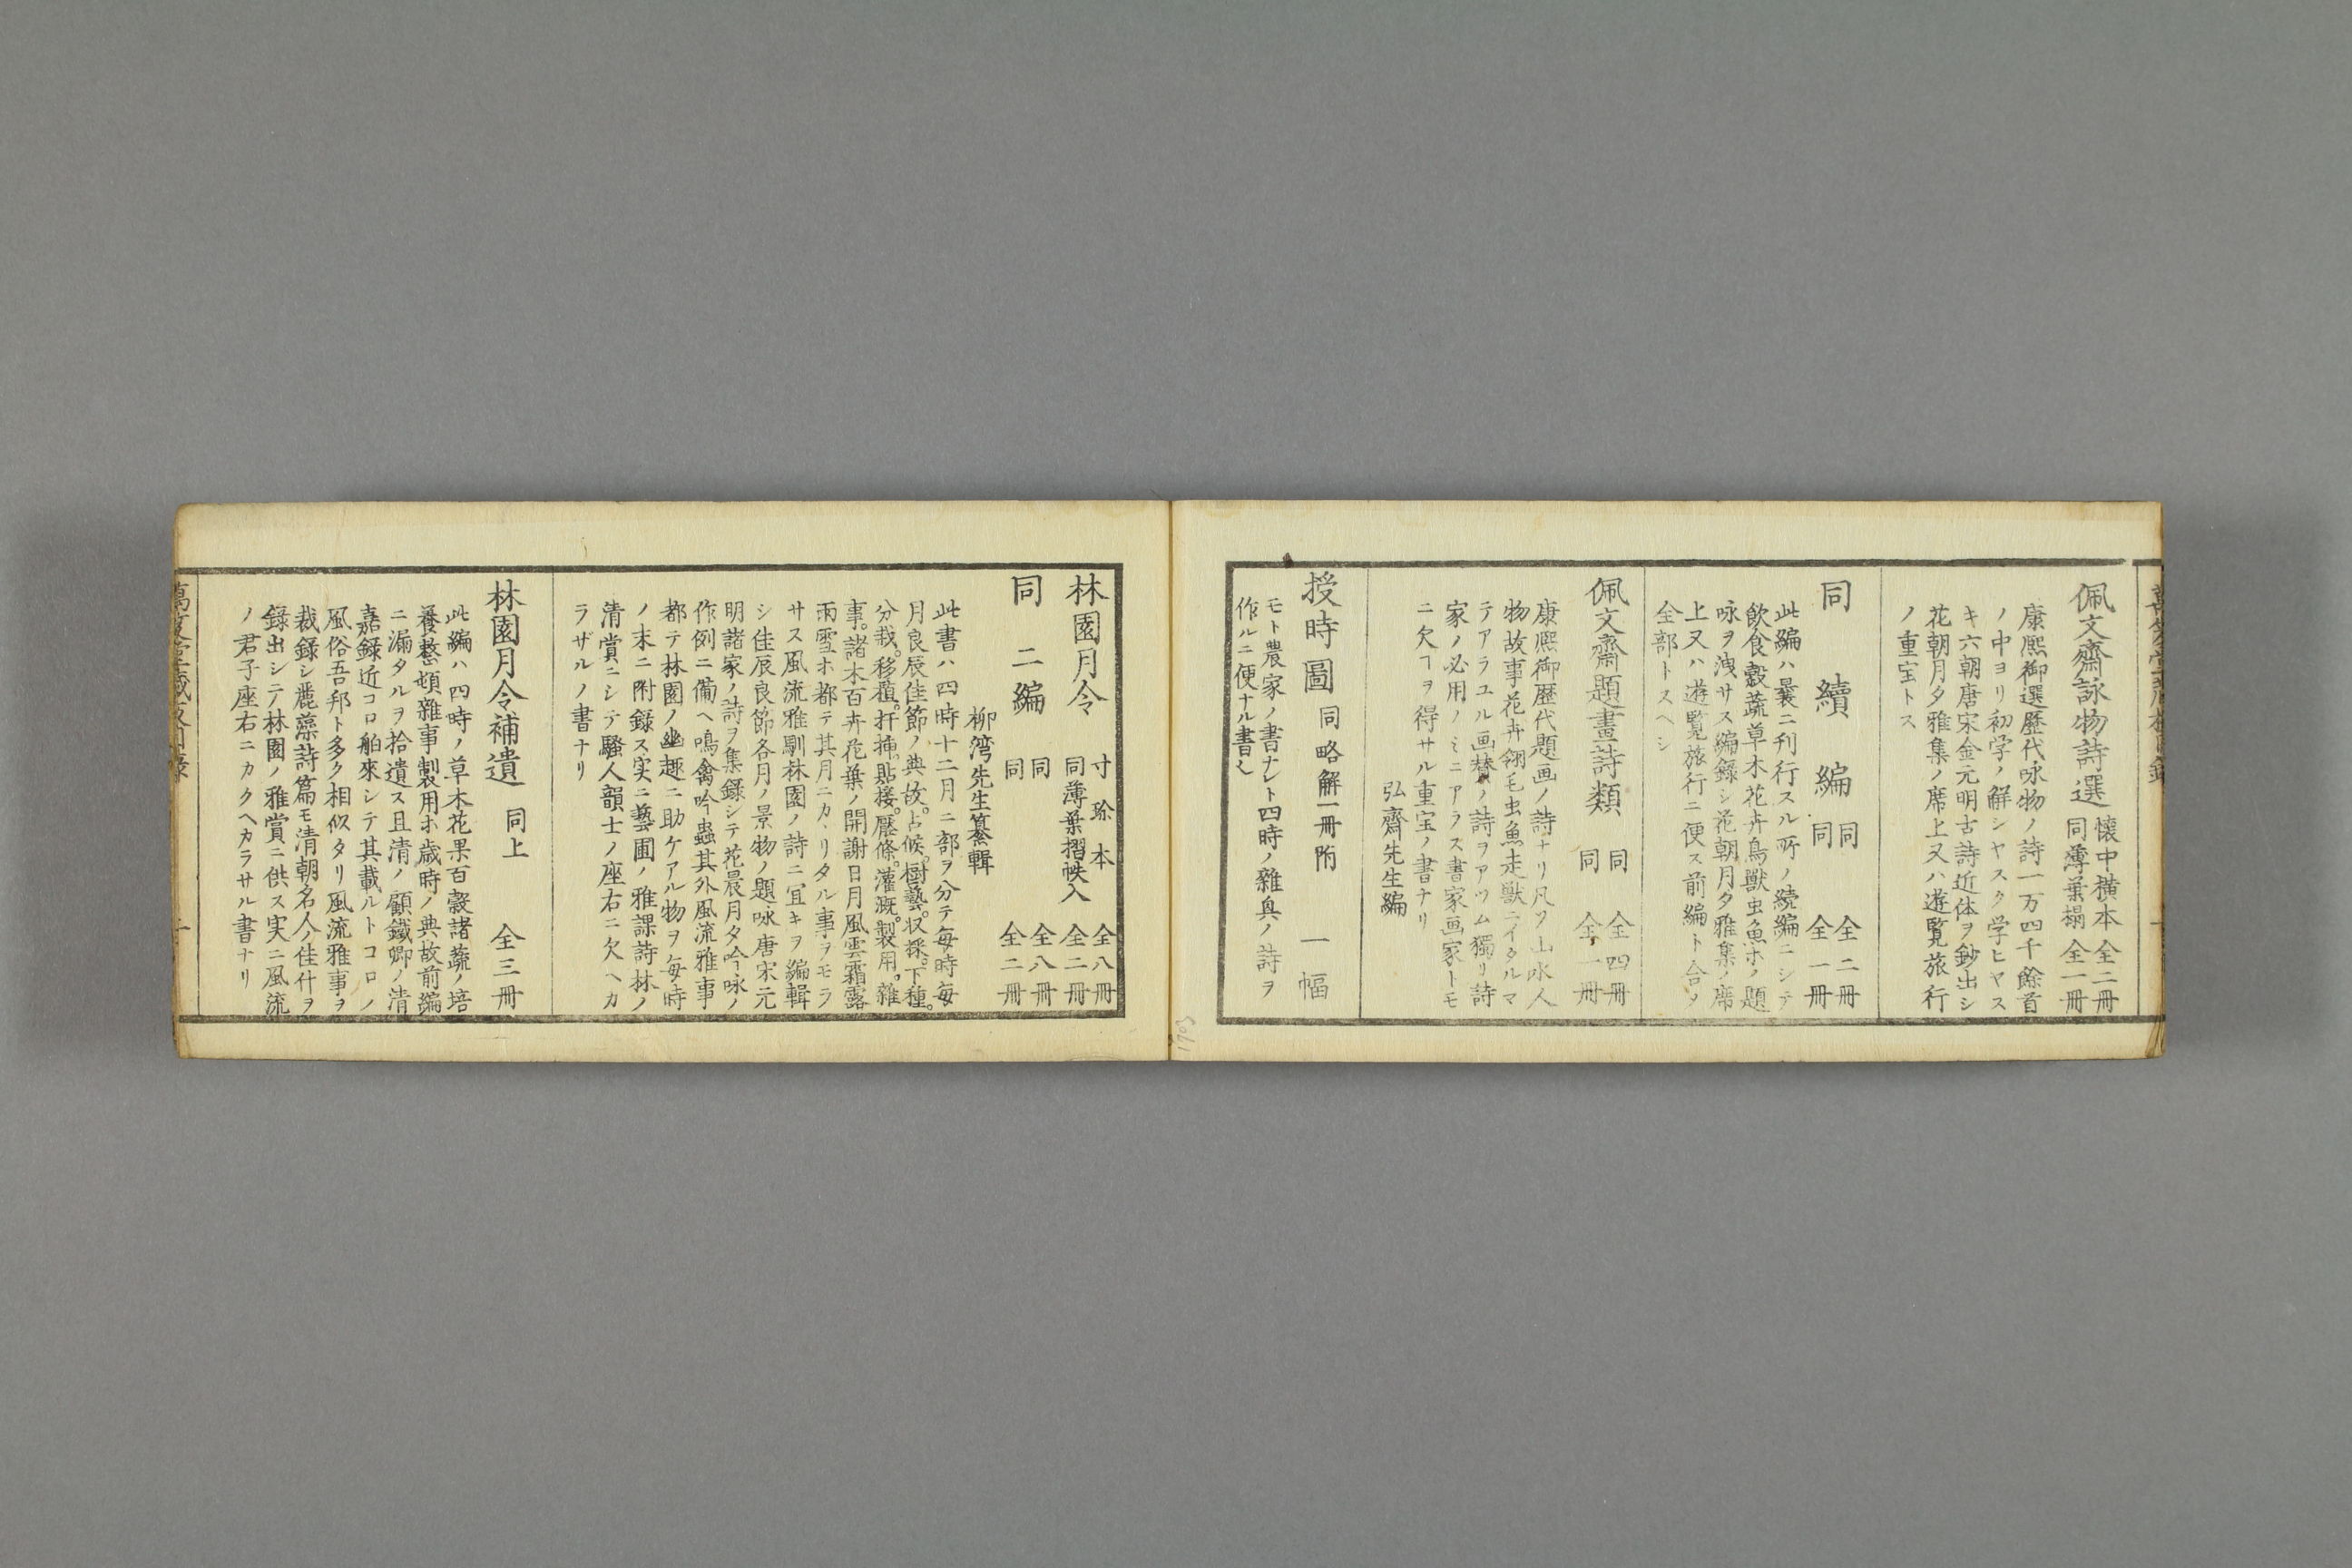 佩文齋詠物詩選 懐中横本 全二冊
同薄葉摺 全一冊
康熈御選歴代咏物ノ詩一万四千餘首
ノ中ヨリ初学ノ解シヤスク学ヒヤス
キ六朝唐宋金元明古詩近体ヲ鈔出シ
花朝月夕雅集ノ席上又ハ遊覧旅行
ノ重宝トス
同 續編 同 全二冊
同 全一冊
此編ハ曩ニ刊行スル所ノ続編ニシテ
飲食穀蔬草木花卉鳥獣虫魚ホノ題
咏ヲ洩サス編録シ花朝月夕雅集ノ席
上又ハ遊覧旅行ニ便ス前編ト合メ
全部トスヘシ
佩文齋題畫詩類 同 全四冊
同 全一冊
康熈御歴代題画ノ詩ナリ凡ヲ山水人
物故事花卉翎毛虫魚走獣ニイタルマ
テアラユル画賛ノ詩ヲアツム獨リ詩
家ノ必用ノミニアラス書家画家トモ
ニ欠ヿヲ得サル重宝ノ書ナリ
弘齋先生編
授時圖 同略解一冊附 一幅
モト農家ノ書ナレト四時ノ雜興ノ詩ヲ
作ルニ便ナル書也
林園月令 寸珍本 全八冊
同薄葉摺帙入 全二冊
同 二編 同 全八冊
同 全二冊
柳湾先生纂輯
此書ハ四時十二月ニ部ヲ分テ毎時毎
月良辰佳節ノ典故。占候。樹藝。収採。下種。
分栽。移植。扦挿。貼接。壓條。灌漑。製用。雜
事。諸木百卉花葉ノ開謝日月風雲霜露
雨雪ホ都テ其月ニカヽリタル事ヲモラ
サス風流雅馴林園ノ詩ニ宜キヲ編輯
シ佳辰良節各月ノ景物ノ題咏唐宋元
明諸家ノ詩ヲ集録シテ花晨月夕吟咏ノ
作例ニ備ヘ鳴禽吟蟲其外風流雅事
都テ林園ノ幽趣ニ助ケアル物ヲ毎時
ノ末ニ附録ス実ニ藝圃ノ雅課詩林ノ
清賞ニシテ騒人韻士ノ座右ニ欠ヘカ
ラザルノ書ナリ
林園月令補遺 同上 全三冊
此編ハ四時ノ草木花果百穀諸蔬ノ培
養整頓雜事製用ホ歳時ノ典故前編
ニ漏タルヲ拾遺ス且清ノ顧鐵卿ノ清
嘉録近コロ舶來シテ其載ルトコロノ
風俗吾邦ト多ク相似タリ風流雅事ヲ
裁録シ麗藻詩篇モ清朝名人ノ佳什ヲ
録出シテ林園ノ雅賞ニ供ス実ニ風流
ノ君子座右ニカクヘカラサル書ナリ